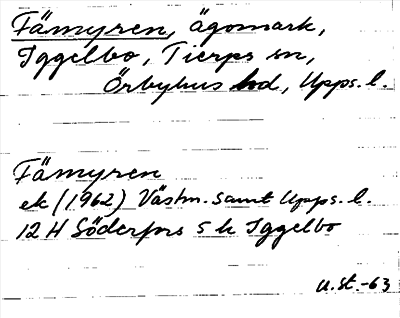 Fämyren, ägomark,
Iggelbo, Tierps sn,
Örbyhus hd, Upps. l.
Fämyren
ek (1962) Västm. samt Upps. l.
12 H Söderfors S k Iggelbo
u.st.-63